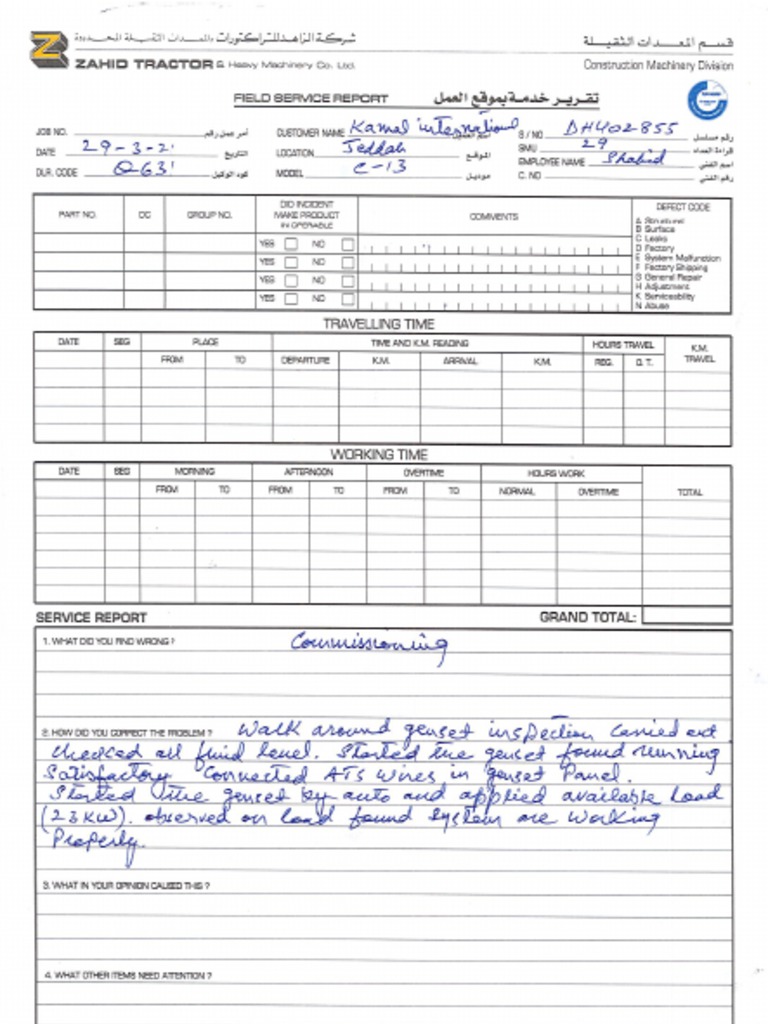 شركة الزاهد للتراكتورات والمعدات الثقيلة المحدودة
ZAHID TRACTOR & Heavy Machinery Co. Ltd.
قسم المعدات الثقيلة
Construction Machinery Division
FIELD SERVICE REPORT تقرير خدمة بموقع العمل
JOB NO. أمر عمل رقم
CUSTOMER NAME Kamal international
S / NO DH402855 رقم مسلسل
DATE 29-3-2 التاريخ
LOCATION Jeddah الموقع
SMU 29 قراءة العداد
DLR. CODE Q63 كود الوكيل
MODEL C-13 موديل
EMPLOYEE NAME Shahid اسم الفني
C. NO رقم الفني
PART NO. DC GROUP NO. DID INCIDENT MAKE PRODUCT INOPERABLE COMMENTS DEFECT CODE
YES NO
YES NO
YES NO
YES NO
A Structural
B Surface
C Leaks
D Factory
E System Malfunction
F Factory Shipping
G General Repair
H Adjustment
K Serviceability
N Abuse
TRAVELLING TIME
DATE SEG PLACE TIME AND K.M. READING HOURS TRAVEL K.M. TRAVEL
FROM TO DEPARTURE K.M. ARRIVAL K.M. REG. O.T.
WORKING TIME
DATE SEG MORNING AFTERNOON OVERTIME HOURS WORK TOTAL
FROM TO FROM TO FROM TO NORMAL OVERTIME
SERVICE REPORT GRAND TOTAL:
1. WHAT DID YOU FIND WRONG ? Commissioning
2. HOW DID YOU CORRECT THE PROBLEM ? Walk around genset inspection carried out
checked all fluid level. Started the genset found running
Satisfactory Connected ATS wires in genset Panel.
Started the genset by auto and applied available Load
(23KW). observed on load found system are working
Properly.
3. WHAT IN YOUR OPINION CAUSED THIS ?
4. WHAT OTHER ITEMS NEED ATTENTION ?